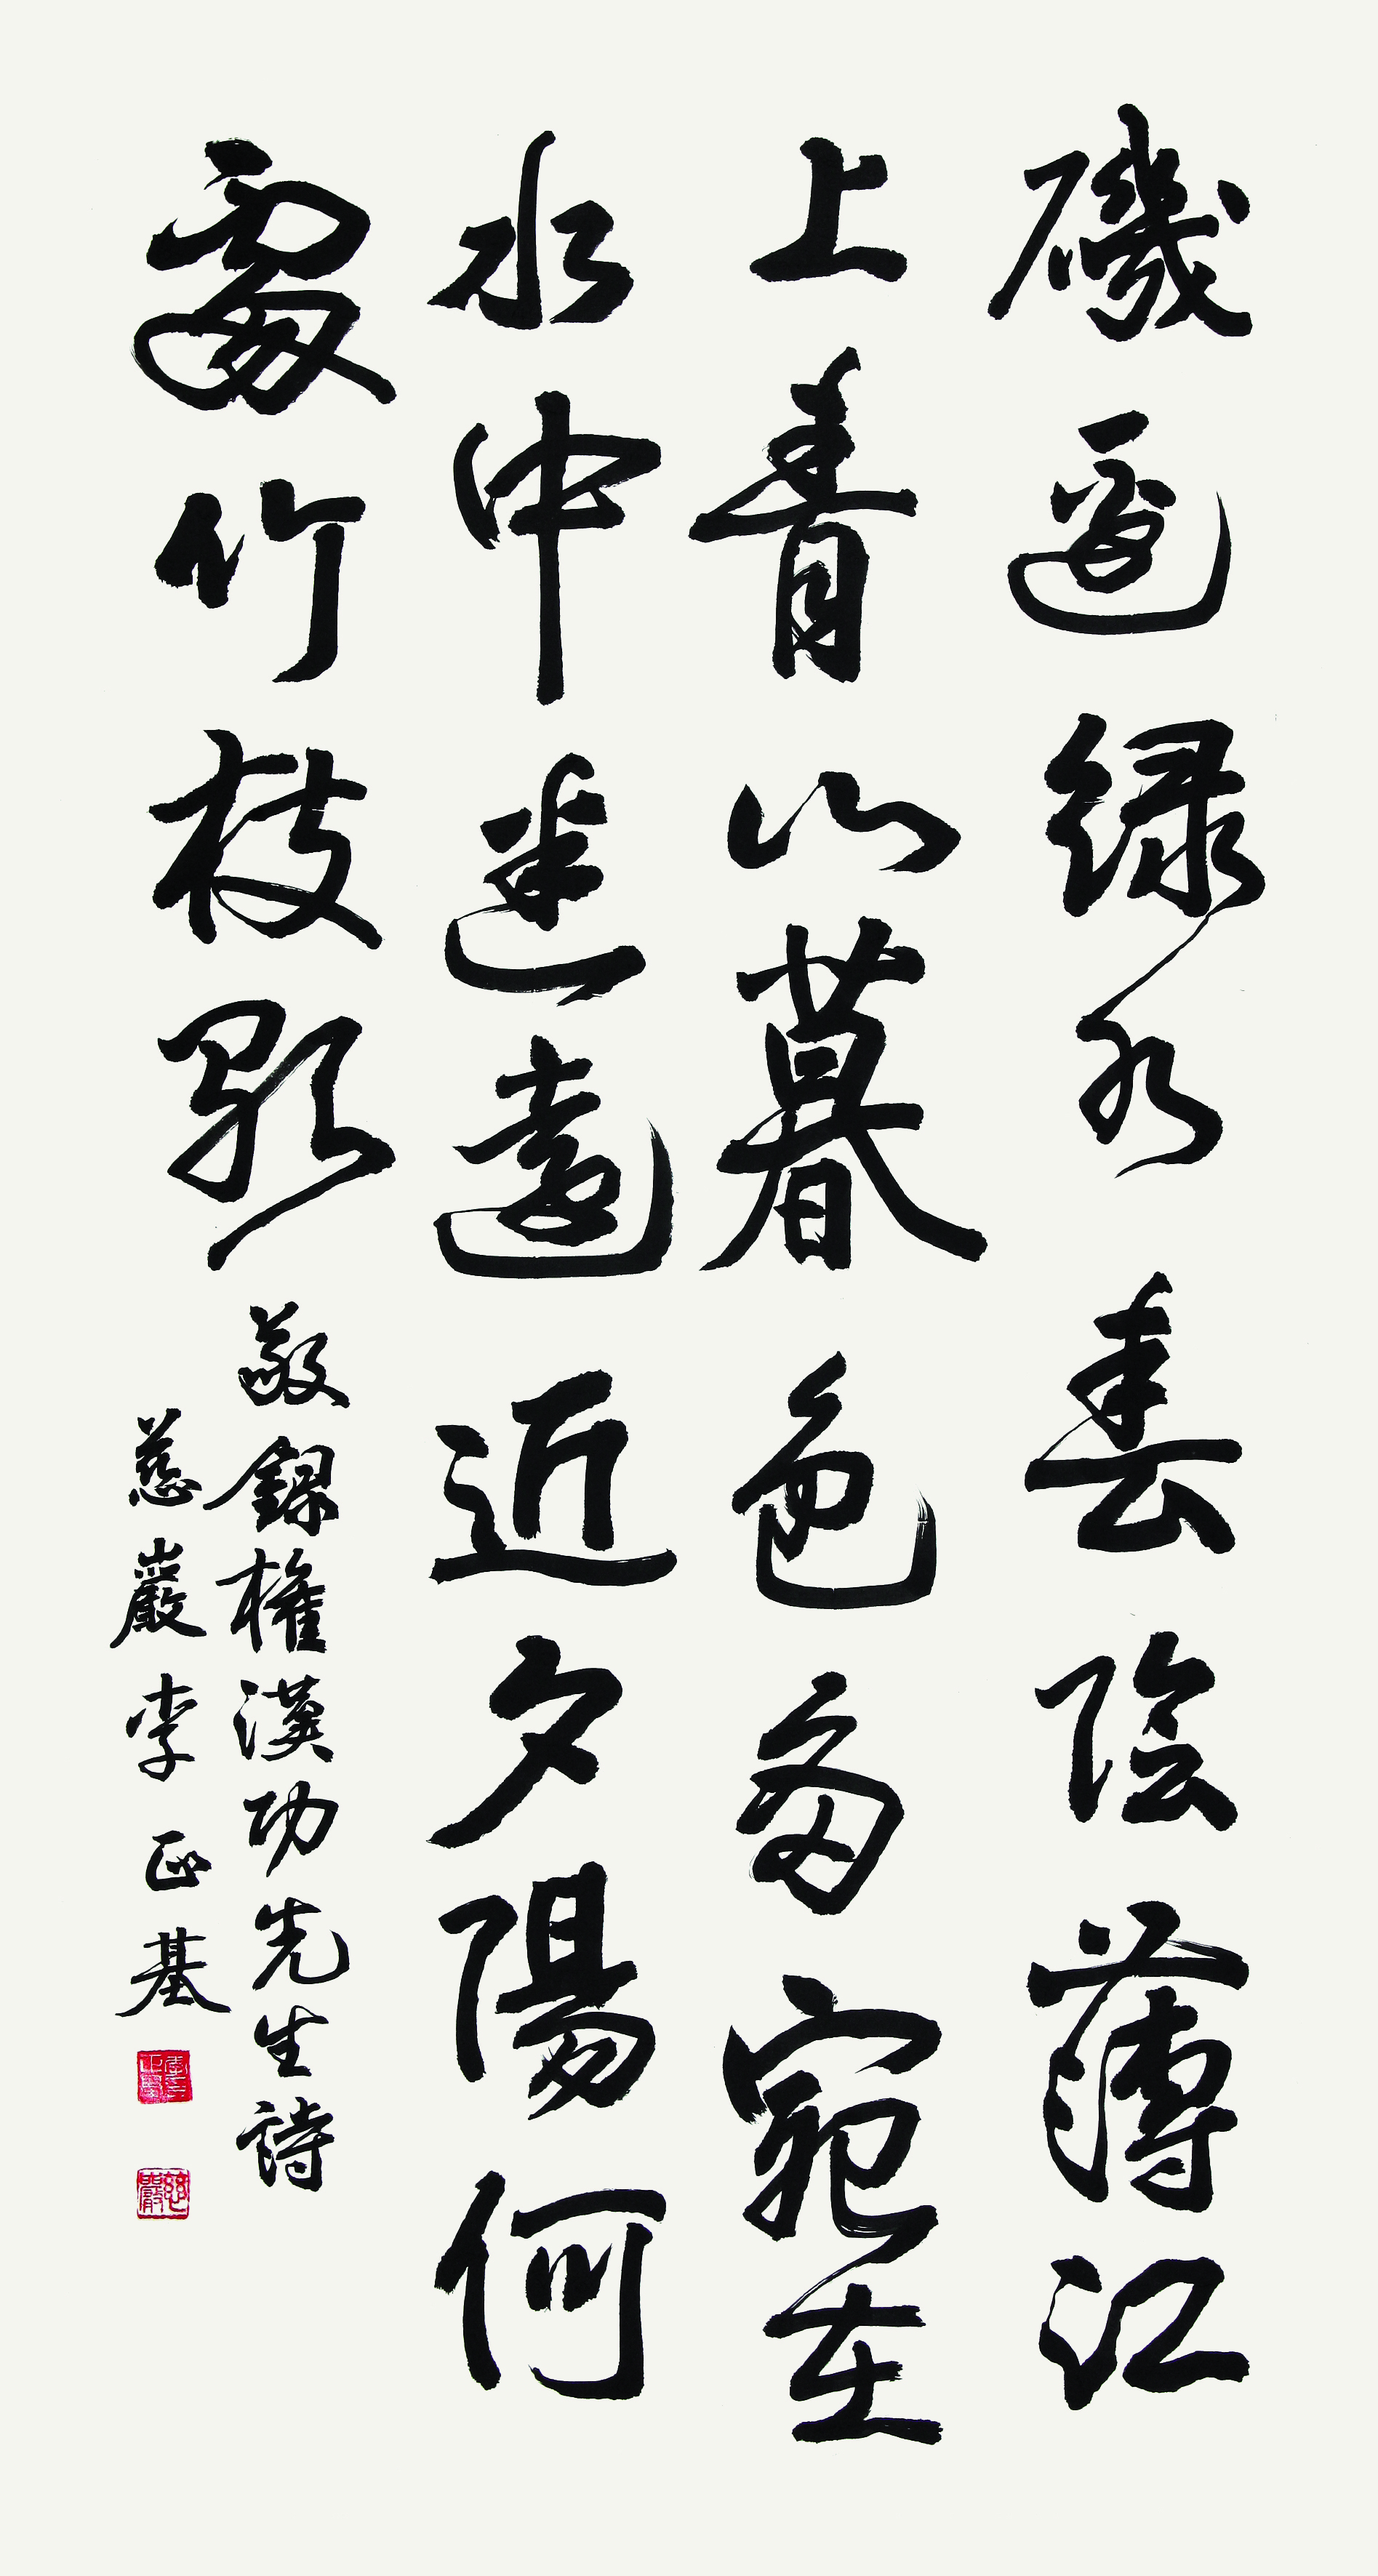 磯邊綠水春陰薄江
上青山暮色多宛在
水中迷遠近夕陽何
處竹枝歌
敬錄權漢功先生詩
慈巖李正基
慈巖